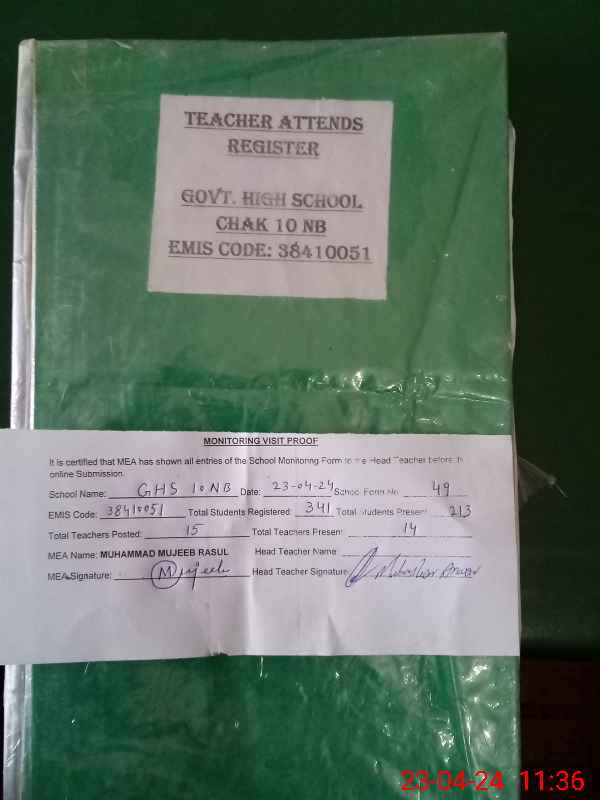 TEACHER ATTENDS
REGISTER
GOVT. HIGH SCHOOL
CHAK 10 NB
EMIS CODE: 38410051
MONITORING VISIT PROOF
It is certified that MEA has shown all entries of the School Monitoring Form to the Head Teacher before
online Submission.
School Name: GHS 10 NB Date: 23-04-24 School Form No. 49
EMIS Code: 38410051 Total Students Registered: 341 Total Students Present 213
Total Teachers Posted: 15 Total Teachers Present 14
MEA Name: MUHAMMAD MUJEEB RASUL Head Teacher Name:
MEA Signature: Mujeeb Head Teacher Signature
23-04-24 11:36